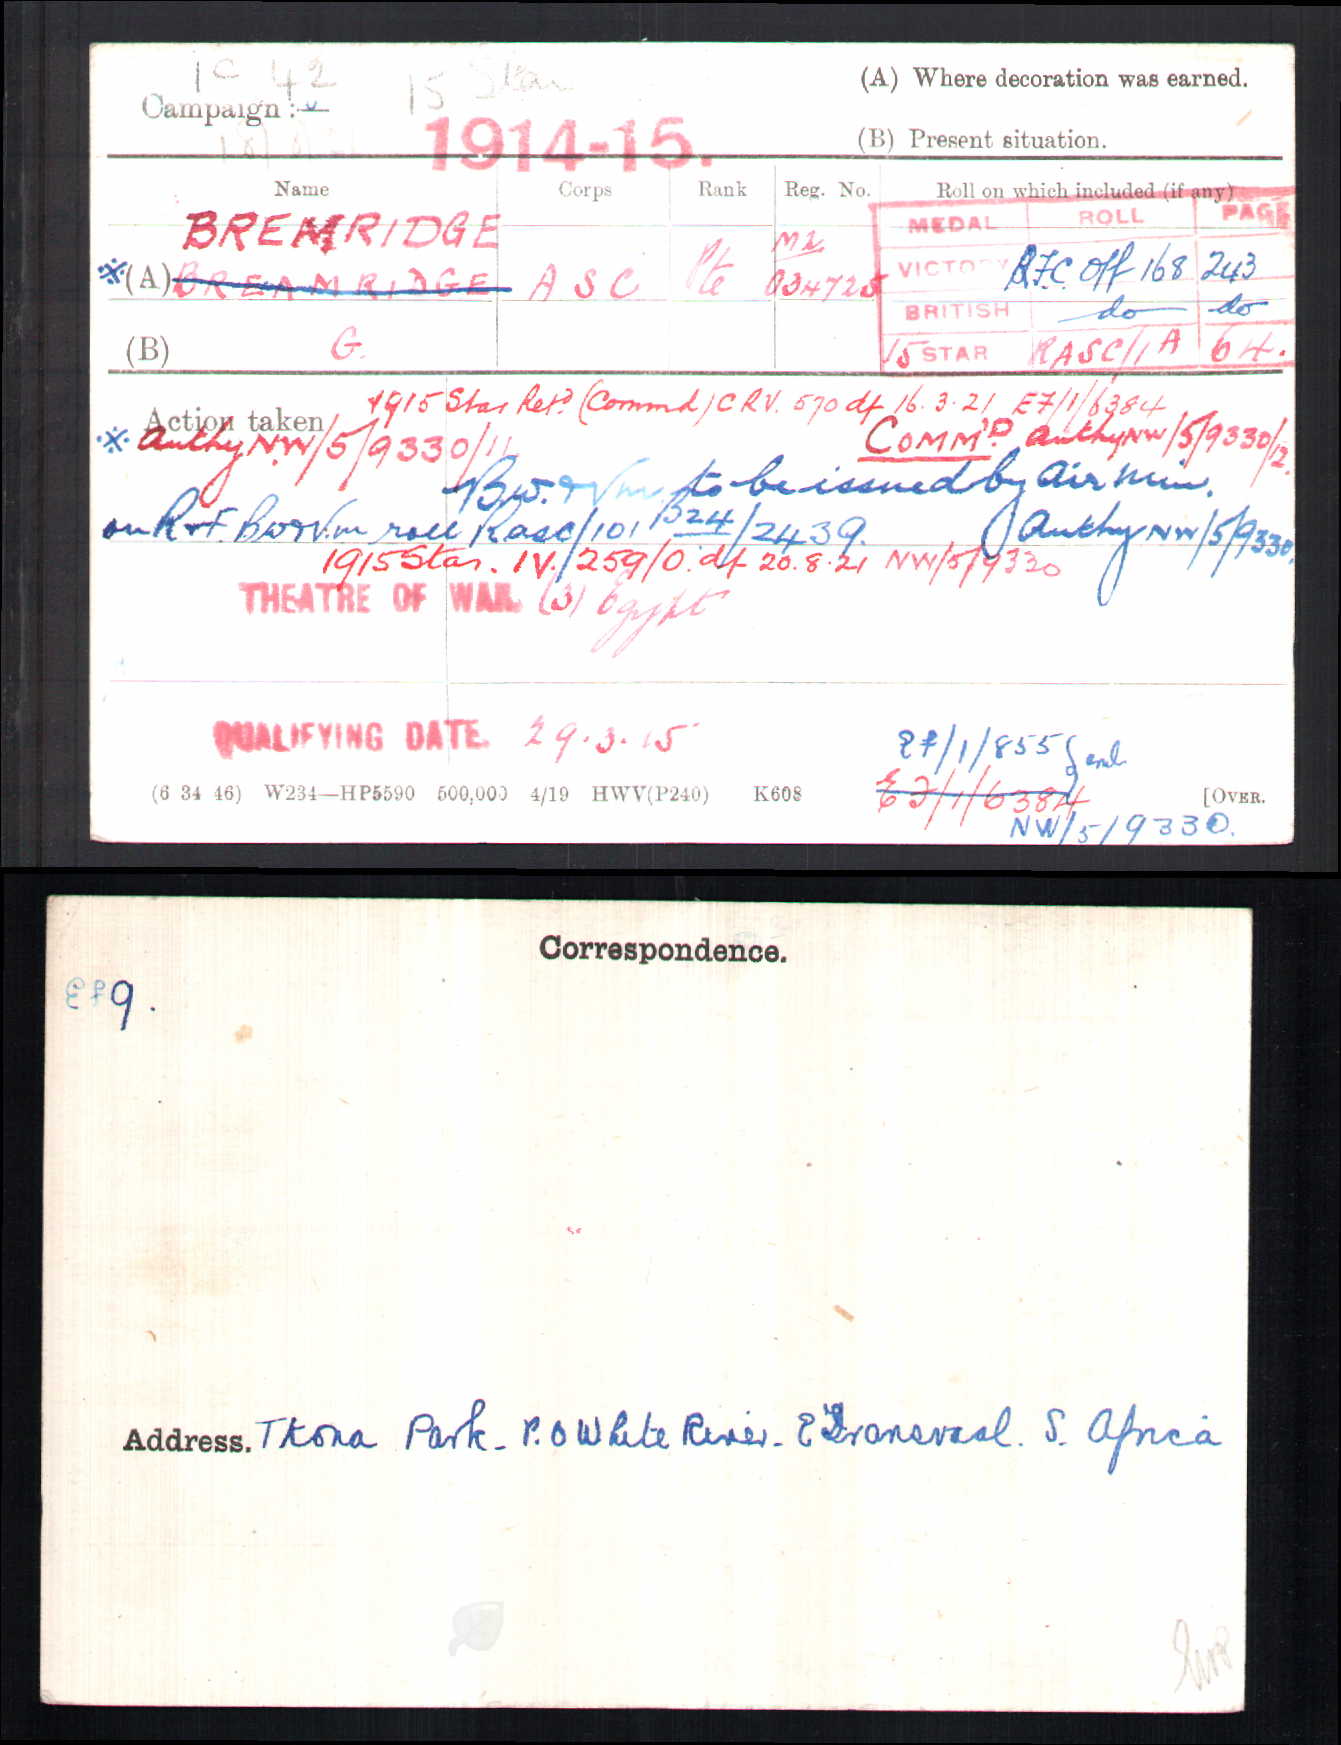 1C 42 15 Star
Campaign :-
(A) Where decoration was earned.
1914-15.
(B) Present situation.
Name Corps Rank Reg. No. Roll on which included (if any)
MEDAL ROLL PAGE
BREMRIDGE M2
VICTORY R.F.C. Off 168 243
※(A) BREAMRIDGE A S C Pte 034725
BRITISH do do
(B) G. 15 STAR RASC/1 A 64.
1915 Star Retd (Commd) CRV. 570 df 16.3.21 EF/1/6384
Action taken
※ Authy NW/5/9330/11 COMMD Authy NW/5/9330/12.
B.W. & Vm to be issued by Air Min.
on R & F. BW & Vm roll Rasc/101 B24/2439. Authy NW/5/9330.
1915 Star. IV./259/0. df 20.8.21 NW/5/9330
THEATRE OF WAR. (3) Egypt
QUALIFYING DATE. 29.3.15
EF/1/855
(6 34 46) W234—HP5590 500,000 4/19 HWV(P240) K608 EF/1/6384 [OVER.
NW/5/9330.
Correspondence.
EF9.
Address. Tkona Park. P.O White River. E Transvaal. S. Africa